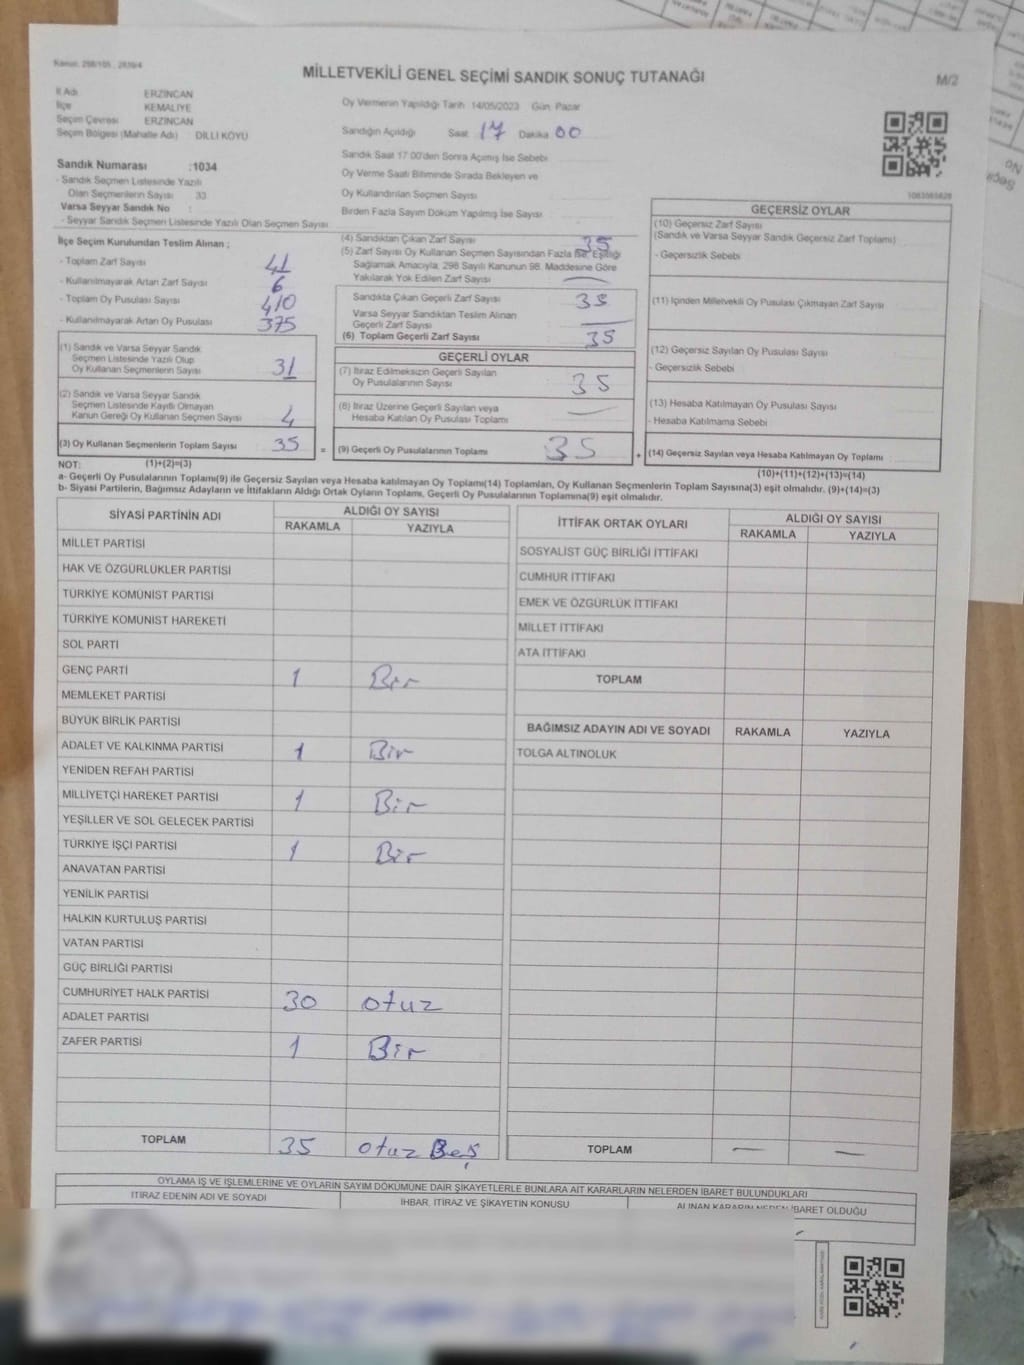 Kanun: 298/105 , 2839/4
MİLLETVEKİLİ GENEL SEÇİMİ SANDIK SONUÇ TUTANAĞI
M/2
İl Adı ERZİNCAN
İlçe KEMALİYE
Seçim Çevresi ERZİNCAN
Seçim Bölgesi (Mahalle Adı) : DİLLİ KÖYÜ
Sandık Numarası :1034
- Sandık Seçmen Listesinde Yazılı
Olan Seçmenlerin Sayısı 33
Varsa Seyyar Sandık No :
- Seyyar Sandık Seçmen Listesinde Yazılı Olan Seçmen Sayısı
Oy Vermenin Yapıldığı Tarih 14/05/2023 Gün: Pazar
Sandığın Açıldığı Saat 17 Dakika 00
Sandık Saat 17:00'den Sonra Açılmış İse Sebebi
Oy Verme Saati Bitiminde Sırada Bekleyen ve
Oy Kullandırılan Seçmen Sayısı
Birden Fazla Sayım Döküm Yapılmış İse Sayısı
1063565828
İlçe Seçim Kurulundan Teslim Alınan ;
- Toplam Zarf Sayısı 41
- Kullanılmayarak Artan Zarf Sayısı 6
- Toplam Oy Pusulası Sayısı 410
- Kullanılmayarak Artan Oy Pusulası 375
(1) Sandık ve Varsa Seyyar Sandık
Seçmen Listesinde Yazılı Olup
Oy Kullanan Seçmenlerin Sayısı 31
(2) Sandık ve Varsa Seyyar Sandık
Seçmen Listesinde Kayıtlı Olmayan
Kanun Gereği Oy Kullanan Seçmen Sayısı 4
(3) Oy Kullanan Seçmenlerin Toplam Sayısı 35
(4) Sandıktan Çıkan Zarf Sayısı 35
(5) Zarf Sayısı Oy Kullanan Seçmen Sayısından Fazla İse, Eşitliği
Sağlamak Amacıyla, 298 Sayılı Kanunun 98. Maddesine Göre
Yakılarak Yok Edilen Zarf Sayısı —
Sandıkta Çıkan Geçerli Zarf Sayısı 35
Varsa Seyyar Sandıktan Teslim Alınan
Geçerli Zarf Sayısı —
(6) Toplam Geçerli Zarf Sayısı 35
GEÇERLİ OYLAR
(7) İtiraz Edilmeksizin Geçerli Sayılan
Oy Pusulalarının Sayısı 35
(8) İtiraz Üzerine Geçerli Sayılan veya
Hesaba Katılan Oy Pusulası Toplamı —
= (9) Geçerli Oy Pusulalarının Toplamı 35
GEÇERSİZ OYLAR
(10) Geçersiz Zarf Sayısı
(Sandık ve Varsa Seyyar Sandık Geçersiz Zarf Toplamı)
- Geçersizlik Sebebi
(11) İçinden Milletvekili Oy Pusulası Çıkmayan Zarf Sayısı
(12) Geçersiz Sayılan Oy Pusulası Sayısı
- Geçersizlik Sebebi
(13) Hesaba Katılmayan Oy Pusulası Sayısı
- Hesaba Katılmama Sebebi
+ (14) Geçersiz Sayılan veya Hesaba Katılmayan Oy Toplamı
NOT: (1)+(2)=(3) (10)+(11)+(12)+(13)=(14)
a- Geçerli Oy Pusulalarının Toplamı(9) ile Geçersiz Sayılan veya Hesaba katılmayan Oy Toplamı(14) Toplamları, Oy Kullanan Seçmenlerin Toplam Sayısına(3) eşit olmalıdır. (9)+(14)=(3)
b- Siyasi Partilerin, Bağımsız Adayların ve İttifakların Aldığı Ortak Oyların Toplamı, Geçerli Oy Pusulalarının Toplamına(9) eşit olmalıdır.
SİYASİ PARTİNİN ADI ALDIĞI OY SAYISI
RAKAMLA YAZIYLA
MİLLET PARTİSİ
HAK VE ÖZGÜRLÜKLER PARTİSİ
TÜRKİYE KOMÜNİST PARTİSİ
TÜRKİYE KOMÜNİST HAREKETİ
SOL PARTİ
GENÇ PARTİ 1 Bir
MEMLEKET PARTİSİ
BÜYÜK BİRLİK PARTİSİ
ADALET VE KALKINMA PARTİSİ 1 Bir
YENİDEN REFAH PARTİSİ
MİLLİYETÇİ HAREKET PARTİSİ 1 Bir
YEŞİLLER VE SOL GELECEK PARTİSİ
TÜRKİYE İŞÇİ PARTİSİ 1 Bir
ANAVATAN PARTİSİ
YENİLİK PARTİSİ
HALKIN KURTULUŞ PARTİSİ
VATAN PARTİSİ
GÜÇ BİRLİĞİ PARTİSİ
CUMHURİYET HALK PARTİSİ 30 otuz
ADALET PARTİSİ
ZAFER PARTİSİ 1 Bir
TOPLAM 35 otuz Beş
İTTİFAK ORTAK OYLARI ALDIĞI OY SAYISI
RAKAMLA YAZIYLA
SOSYALİST GÜÇ BİRLİĞİ İTTİFAKI
CUMHUR İTTİFAKI
EMEK VE ÖZGÜRLÜK İTTİFAKI
MİLLET İTTİFAKI
ATA İTTİFAKI
TOPLAM
BAĞIMSIZ ADAYIN ADI VE SOYADI RAKAMLA YAZIYLA
TOLGA ALTINOLUK
TOPLAM — —
OYLAMA İŞ VE İŞLEMLERİNE VE OYLARIN SAYIM DÖKÜMÜNE DAİR ŞİKAYETLERLE BUNLARA AİT KARARLARIN NELERDEN İBARET BULUNDUKLARI
İTİRAZ EDENİN ADI VE SOYADI İHBAR, İTİRAZ VE ŞİKAYETİN KONUSU ALINAN KARARIN NEDEN İBARET OLDUĞU